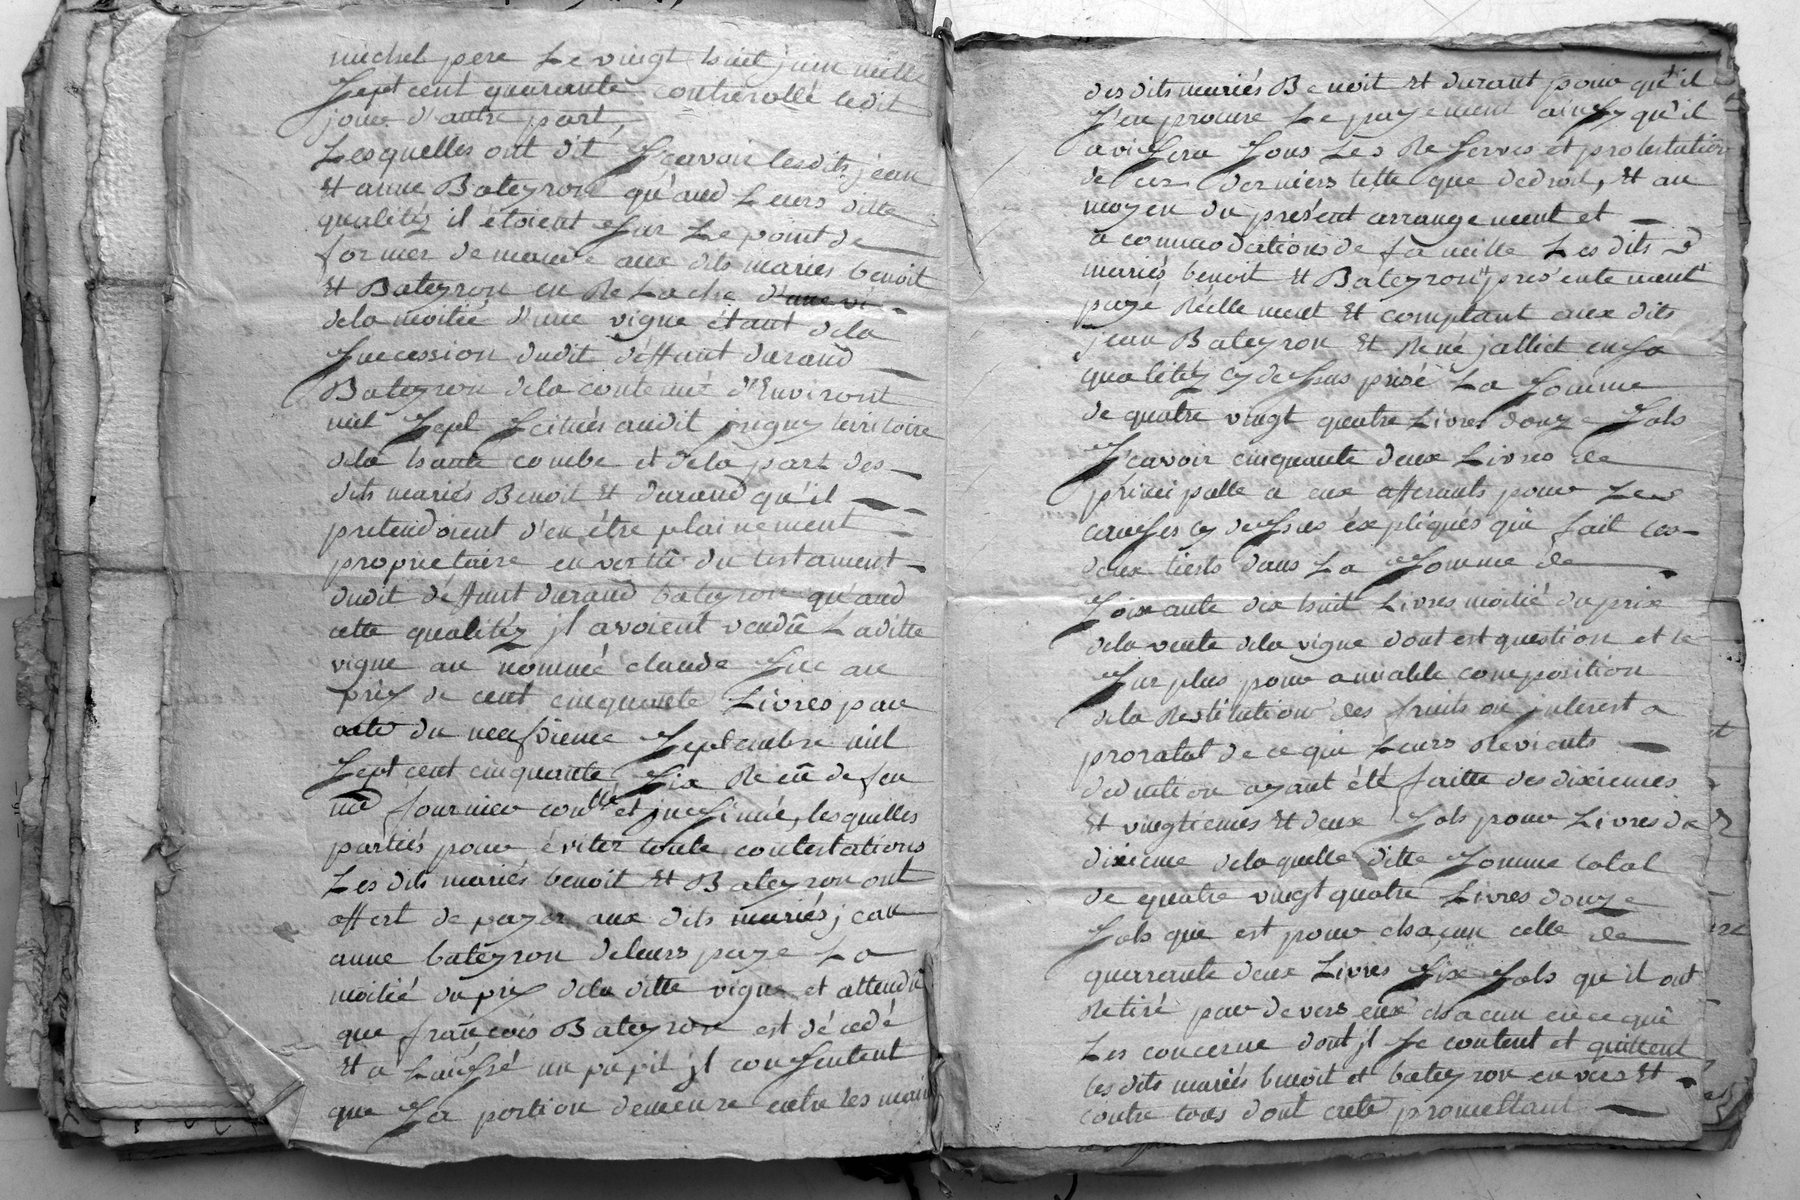 michel pere Le vingt huit juin mille
Sept cent quarante controllé ledit
jour d'autre part,
Lesquelles ont dit Sçavoir lesdits jean
Et anne Bateyron qu'aud Leurs ditte
qualitéz il étoient Sur Le point de
former demande aux dits mariés benoit
Et Bateyron en Relache d'une vi
dela moitié d'une vigne étant dela
Succession dudit déffunt durand
Bateyron dela contenue d'Environt
mil Sept Scitués audit territoire
dela haute combe et dela part des
dits mariés Benoit Et durand qu'il
pretendoient d'en être plainement
proprietaire en vertû du testament
dudit déffunt durand bateyron qu'aud
cette qualitéz jl avoient vendû Laditte
vigne au nommé claude Suc au
prix de cent cinquante Livres par
acte du neufvieme Septembre mil
Sept cent cinquante Six Reçû de feu
me fournier contllé et jnsinué, lesquelles
partiés pour éviter toute contestations
Les dits mariés benoit Et Bateyron ont
offert de payer aux dits mariés jean
anne bateyron deleurs paye La
moitié du prix dela ditte vigne et attendû
que françois Bateyron est décedé
Et a Laissé un pupil jl consentent
que Sa portion demeure entre les mains
desdits mariés Benoit Et durant pour qu'il
S'en procure Le payement ainsy qu'il
avisera Sous Les Reserves et protestations
de ces derniers telle que dedroit, Et au
moyen du présent arrangement et
acommodations de famille Les dits
mariés benoit Et Bateyront présentement
payé Réellement Et comptant aux dits
jean Bateyron Et René jalliet en Sa
qualitéz cy dessus prisé La Somme
de quatre vingt quatre Livres douze Sols
Sçavoir cinquante deux Livres de
principalle a eux afferants pour Les
causes cy dessus éxpliqués qui fait les
deux tierts dans La Somme de
Soixante dix huit Livres moitié du prix
dela vente dela vigne dont est question et le
Surplus pour amiable composition
dela Restitution des fruits ou jnterest a
proratat de ce qui Leurs Revients
deduction ayant été faitte des dixiemes
Et vingtiemes Et deux Sols pour Livres de
dixieme dela quelle ditte Somme total
de quatre vingt quatre Livres douze
Sols qui est pour chaçun celle de
querrente deux Livres Six Sols qu'il ont
Retiré par devers eux chacun en ce qui
Les concerne dont jl Se content et quittent
lesdits mariés benoit et bateyron envers Et
contre tous dont acte promettant